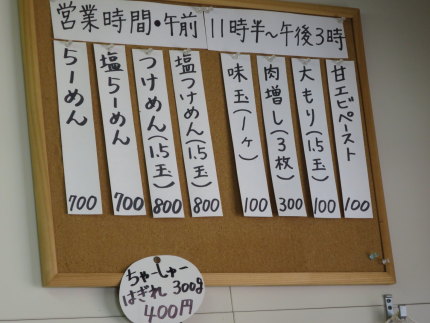 営業時間・午前 11時半～午後3時
らーめん 700
塩らーめん 700
つけめん(1.5玉) 800
塩つけめん(1.5玉) 800
味玉(1ヶ) 100
肉増し(3枚) 300
大もり(1.5玉) 100
甘エビペースト 100
ちゃーしゅー
はぎれ 300g
400円